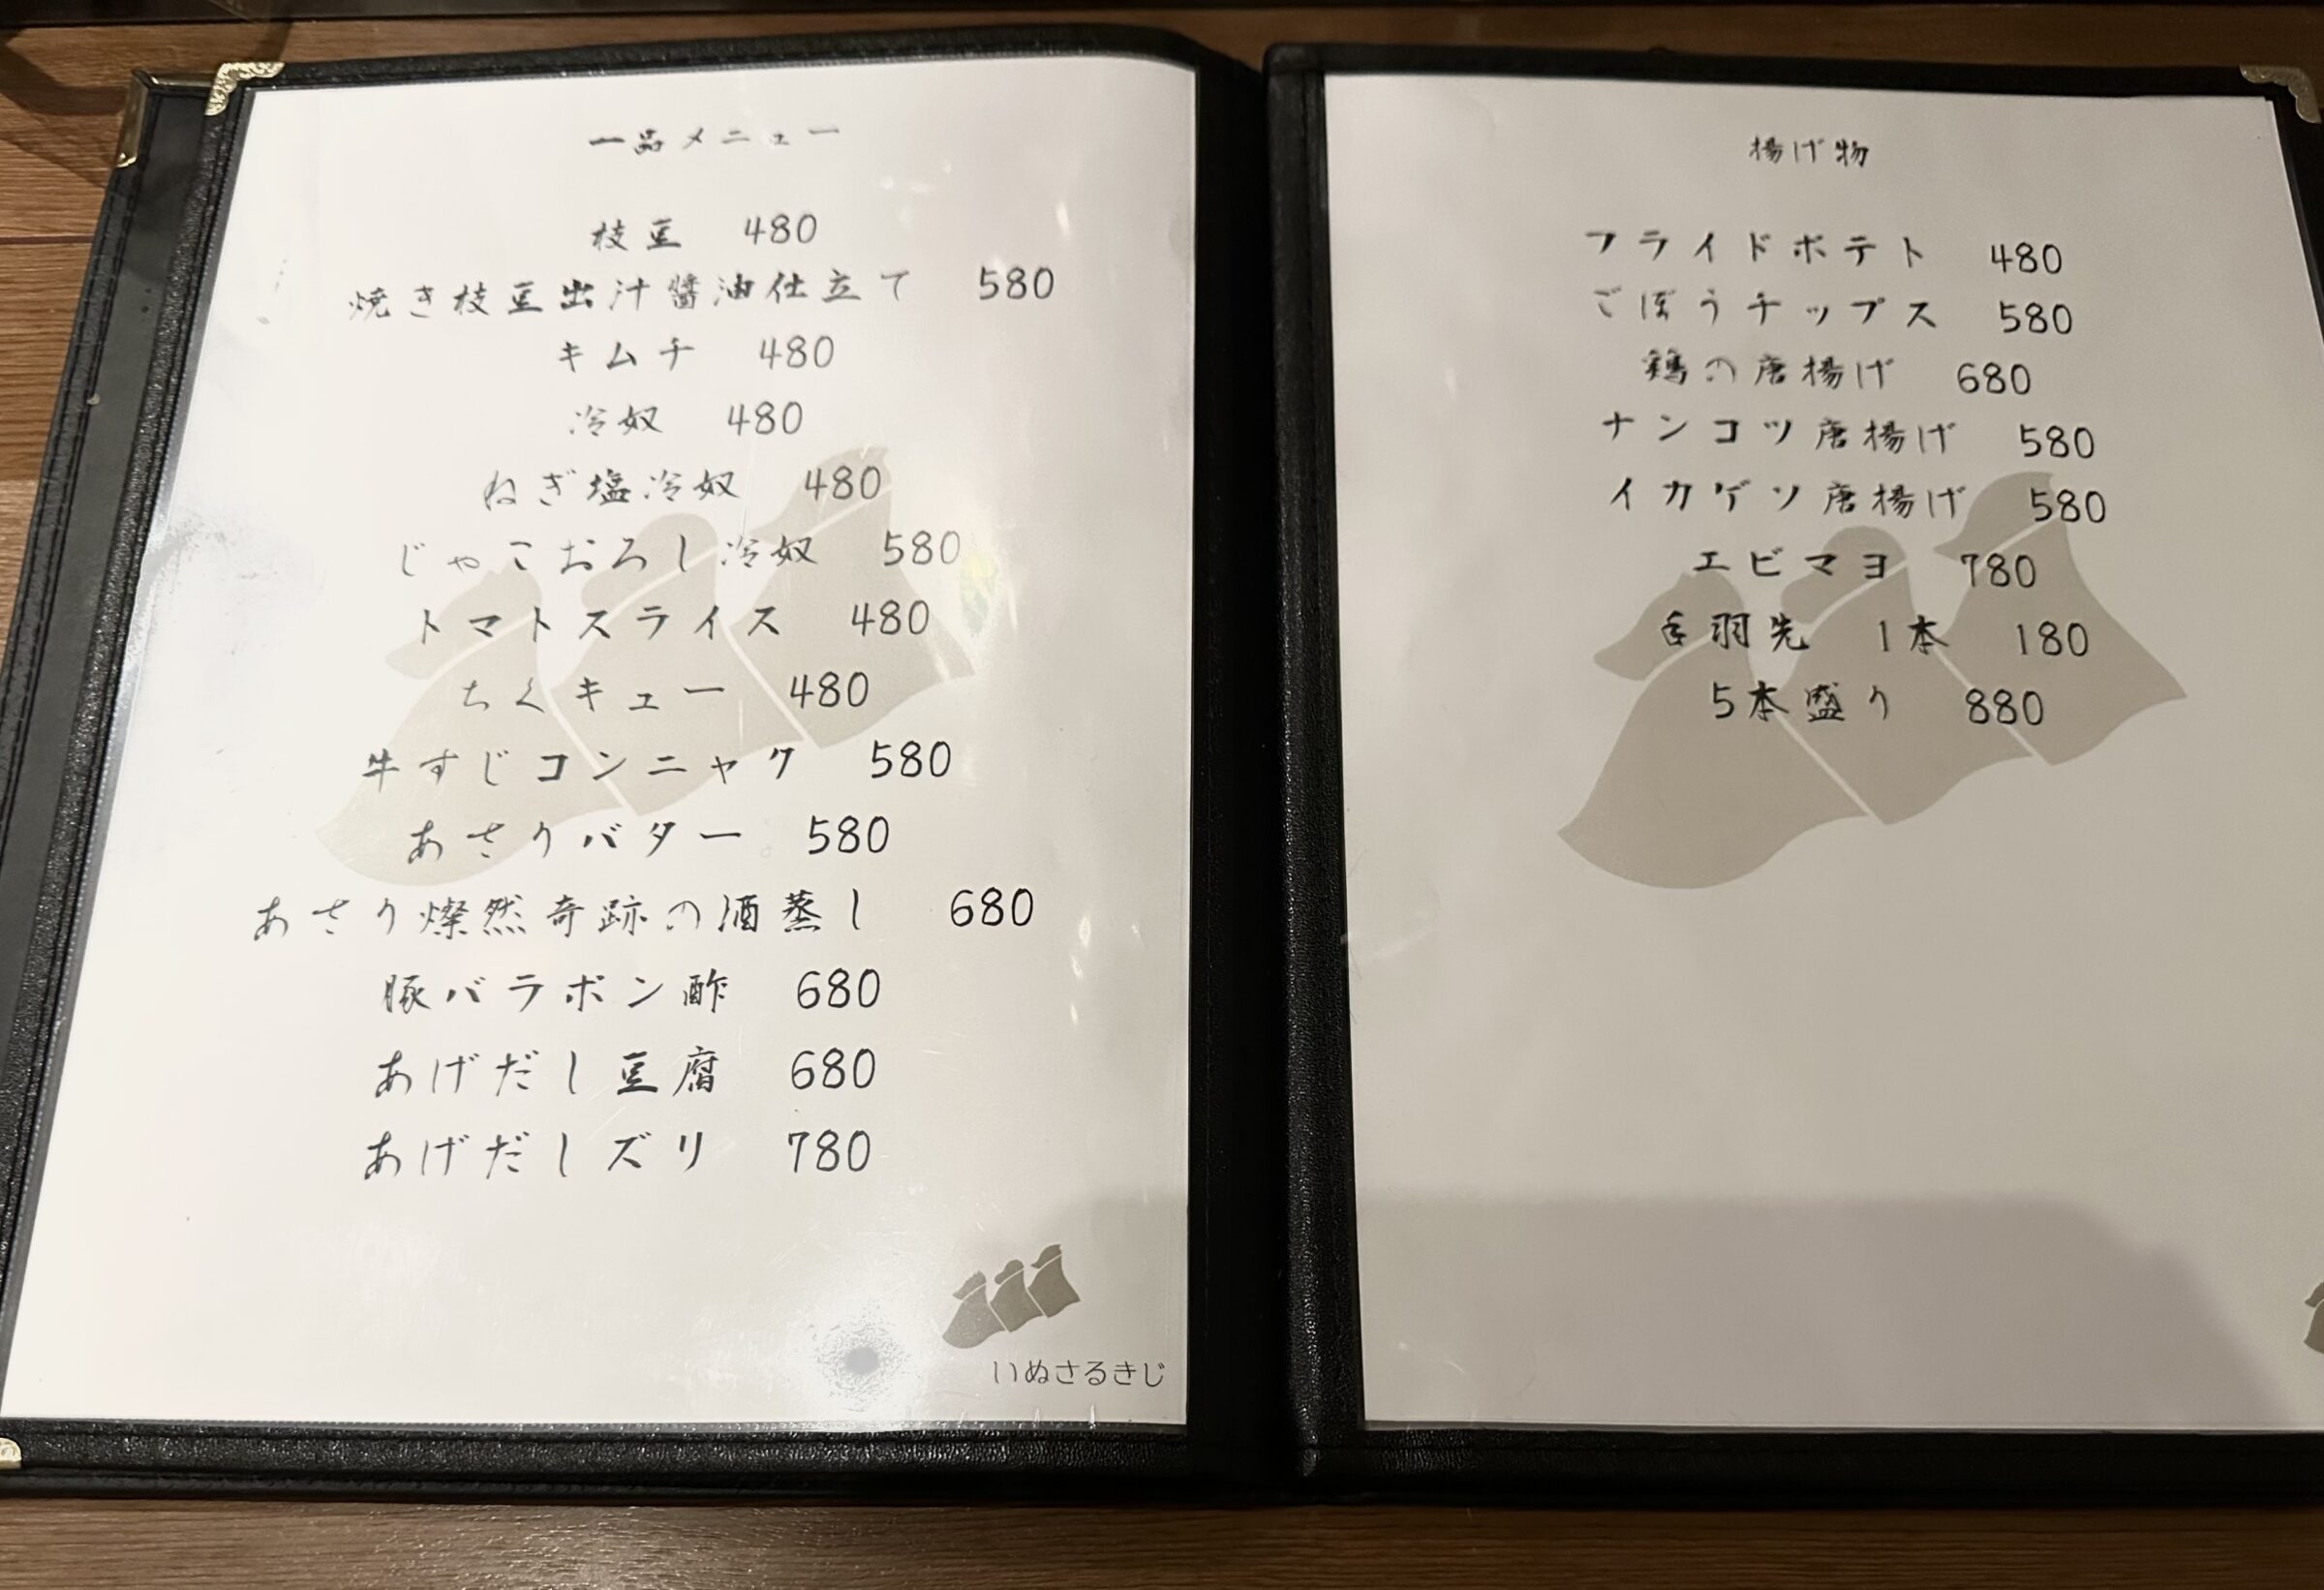 一品メニュー
枝豆 480
焼き枝豆出汁醤油仕立て 580
キムチ 480
冷奴 480
ねぎ塩冷奴 480
じゃこおろし冷奴 580
トマトスライス 480
ちくキュー 480
牛すじコンニャク 580
あさりバター 580
あさり燦然奇跡の酒蒸し 680
豚バラポン酢 680
あげだし豆腐 680
あげだしズリ 780
いぬさるきじ
揚げ物
フライドポテト 480
ごぼうチップス 580
鶏の唐揚げ 680
ナンコツ唐揚げ 580
イカゲソ唐揚げ 580
エビマヨ 780
手羽先 1本 180
5本盛り 880